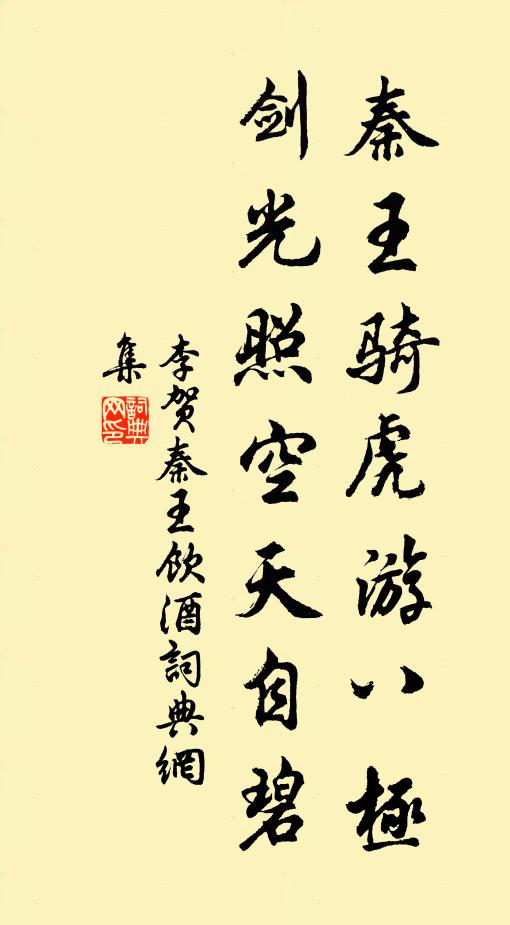 秦王骑虎游八極
剑光照空天自碧
李贺秦王飲酒詞典網
集
詞典
网印